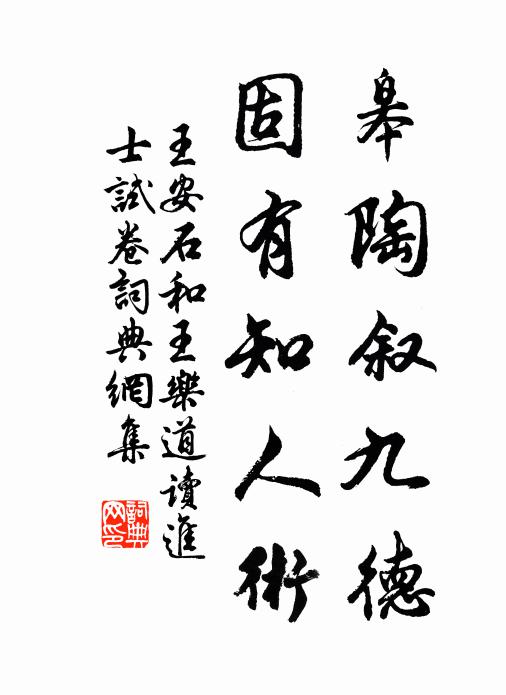 皋陶叙九德
固有知人術
王安石和王樂道讀進
士試卷詞典網集
詞典网印